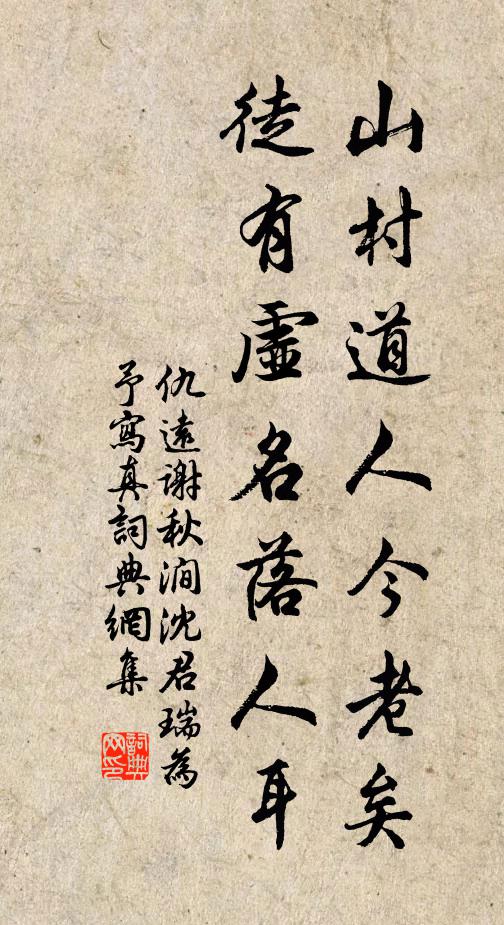 山村道人今老矣
徒有虛名落人耳
仇遠謝秋澗沈君瑞為
予寫真詞典網集
詞典网印